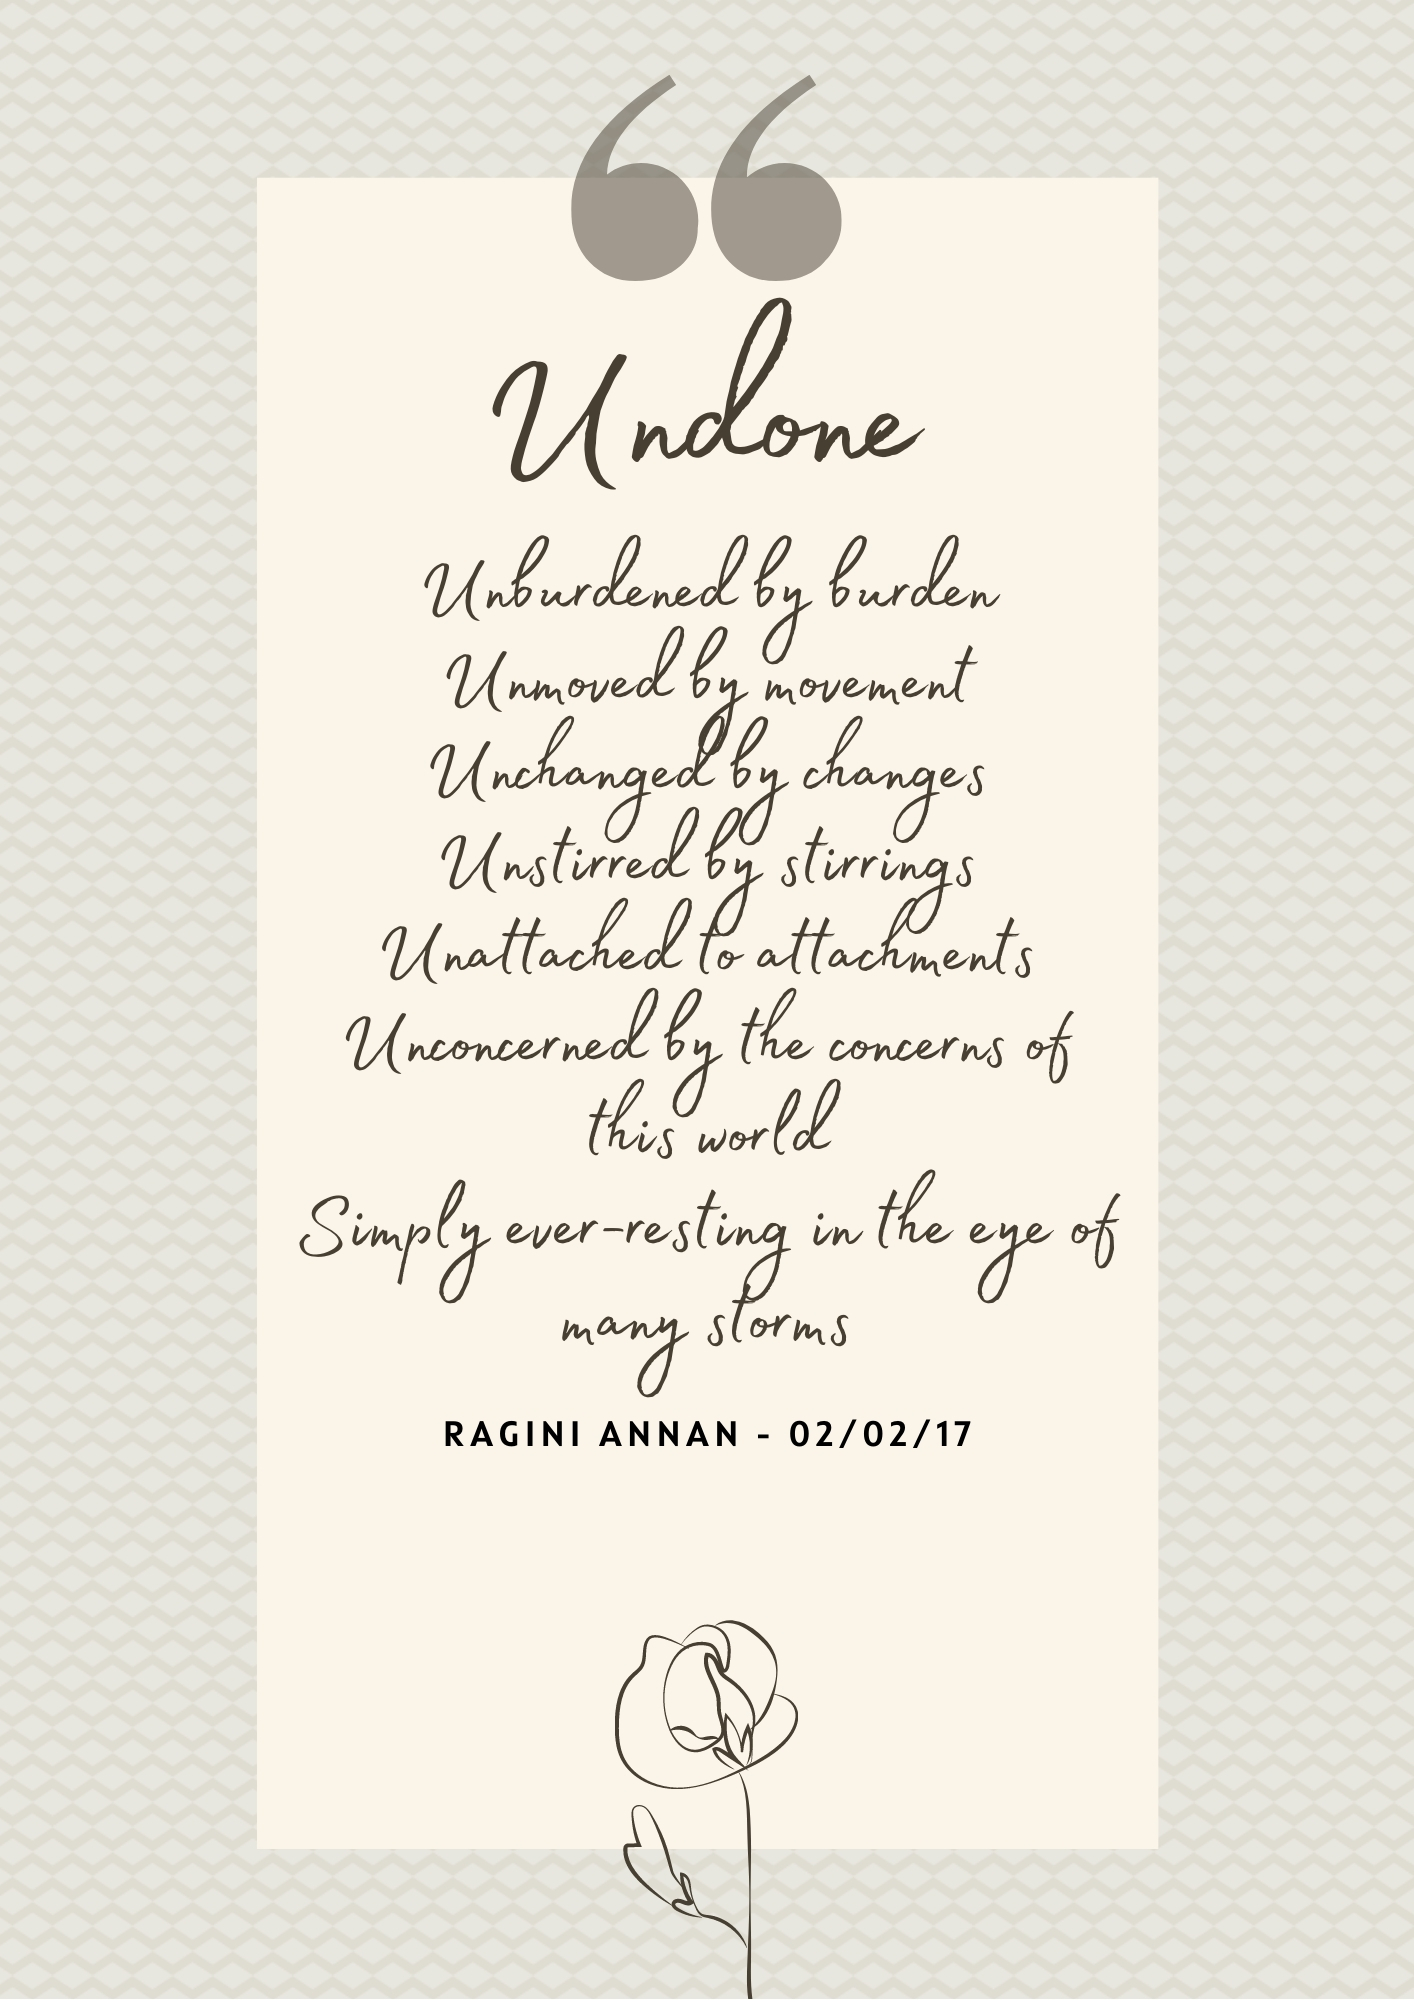 “
Undone
Unburdened by burden
Unmoved by movement
Unchanged by changes
Unstirred by stirrings
Unattached to attachments
Unconcerned by the concerns of
this world
Simply ever-resting in the eye of
many storms
RAGINI ANNAN - 02/02/17